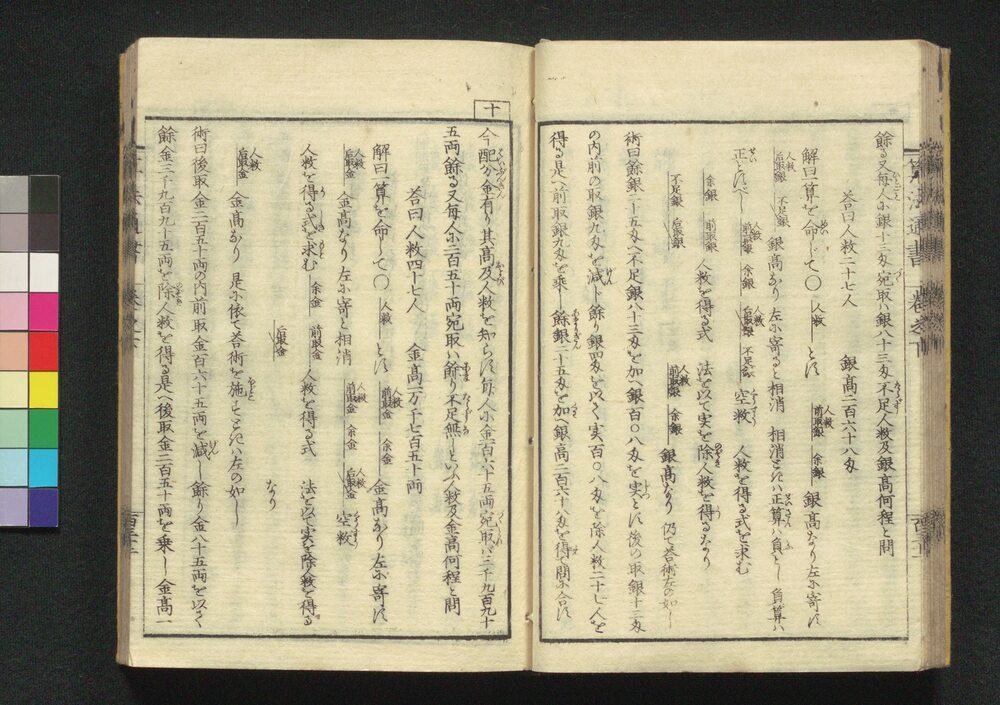 餘る又毎人に銀十三匁宛取ハ銀八十三匁不足人数及銀高何程と問
荅曰人数二十七人 銀高二百六十八匁
解曰一算を命して〇 人数 とす 人数 前取銀 余銀 銀高なり左に寄す
人数 后取銀 不足銀 銀高なり 左に寄ると相消 相消ときハ正算ハ負とし負算ハ
正とすべし 人数 前取銀 余銀 人数 后取銀 不足銀 空数 人数を得る式を求む
余銀 前取銀 人数を得る式 法を以て実を除人数を得るなり
不足銀 后取銀 人数 前取銀 余銀 銀高なり 仍て荅術左の如し
術曰餘銀二十五匁へ不足銀八十三匁を加へ銀百〇八匁を実とす後の取銀十三匁
の内前の取銀九匁を減し餘り銀四匁を以て実百〇八匁を除人数二十七人を
得る是へ前取銀九匁を乗し餘銀二十五匁を加へ銀高二百六十八匁を得て問に合す
十
今配分金有り其高及人数を知らす毎人に金百六十五両宛取ハ三千九百九十
五両餘る又毎人に二百五十両宛取ハ餘り不足無しといふ人数及金高何程と問
荅曰人数四十七人 金高一万千七百五十両
解曰一算を命して〇 人数 とす 人数 前取金 余金 金高なり左に寄す
人数 后取金 金高なり 左に寄と相消 人数 前取金 余金 人数 后取金 空数
人数を得る式を求む 余金 前取金 后取金 人数を得る式 法を以て実を除人数を得る
なり
人数 后取金 金高なり 是に依て荅術を施すときハ左の如し
術曰後取金二百五十両の内前取金百六十五両を減し 餘り金八十五両を以て
餘金三千九百九十五両を除人数を得る是へ後取金二百五十両を乗し金高一